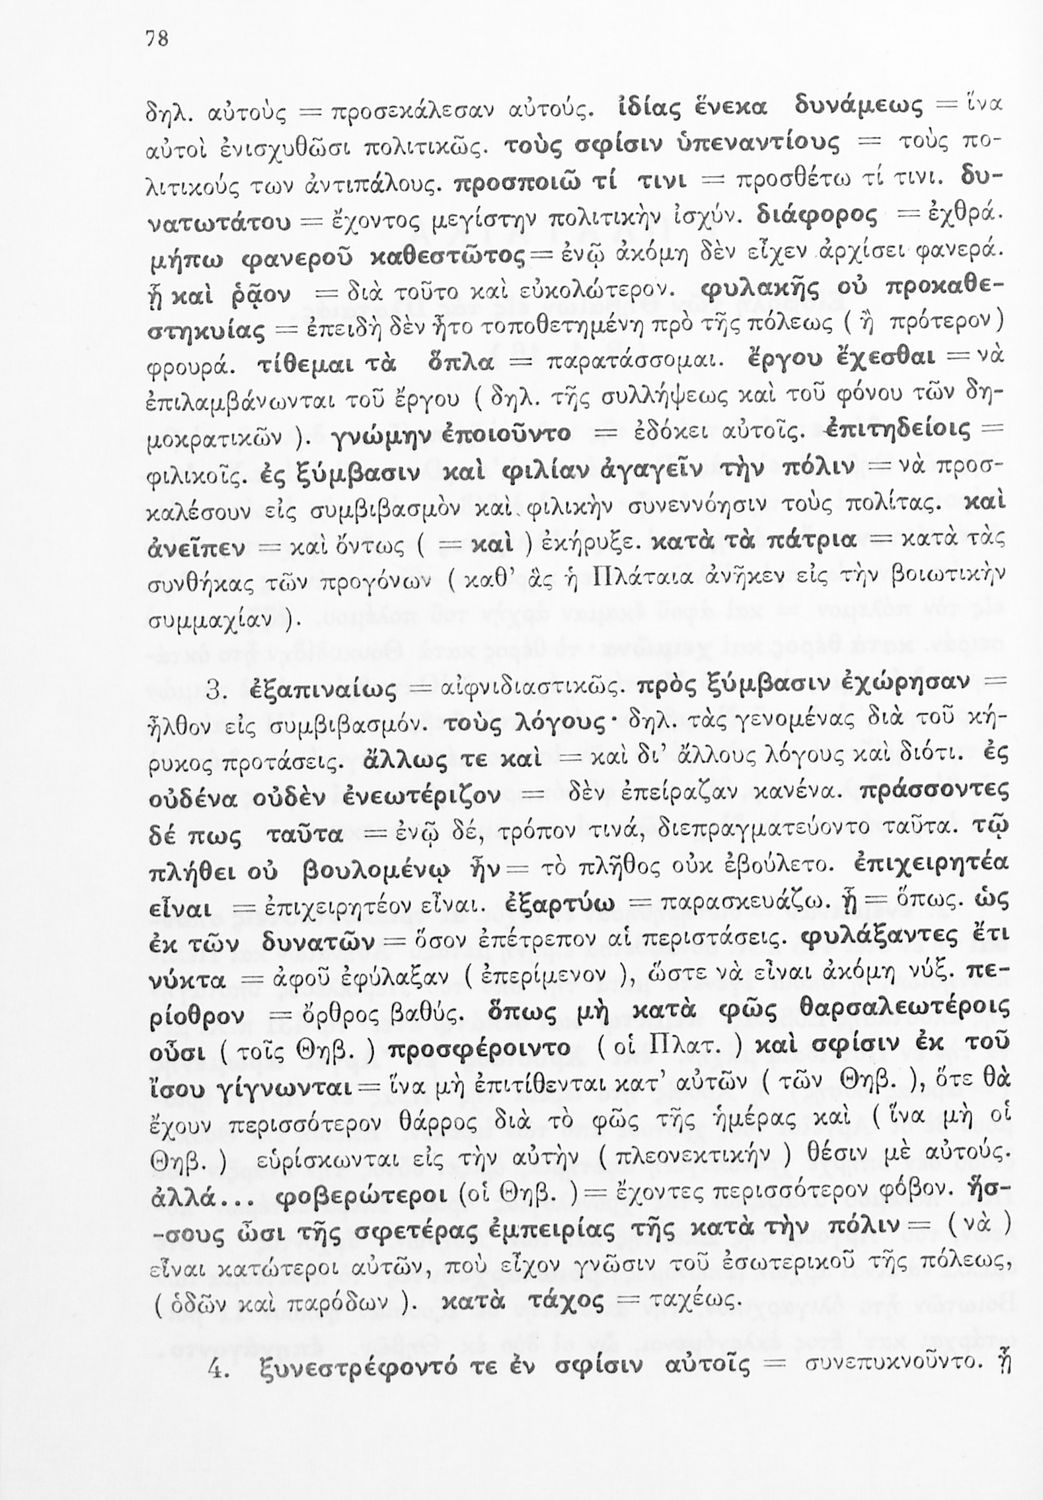 78
δηλ. αὐτοὺς = προσεκάλεσαν αὐτούς. ἰδίας ἕνεκα δυνάμεως = ἵνα
αὐτοὶ ἐνισχυθῶσι πολιτικῶς. τοὺς σφίσιν ὑπεναντίους = τοὺς πο-
λιτικούς των ἀντιπάλους. προσποιῶ τί τινι = προσθέτω τί τινι. δυ-
νατωτάτου = ἔχοντος μεγίστην πολιτικὴν ἰσχύν. διάφορος = ἐχθρά.
μήπω φανεροῦ καθεστῶτος = ἐνῷ ἀκόμη δὲν εἶχεν ἀρχίσει φανερά.
ᾗ καὶ ῥᾷον = διὰ τοῦτο καὶ εὐκολώτερον. φυλακῆς οὐ προκαθε-
στηκυίας = ἐπειδὴ δὲν ἦτο τοποθετημένη πρὸ τῆς πόλεως ( ἢ πρότερον )
φρουρά. τίθεμαι τὰ ὅπλα = παρατάσσομαι. ἔργου ἔχεσθαι = νὰ
ἐπιλαμβάνωνται τοῦ ἔργου ( δηλ. τῆς συλλήψεως καὶ τοῦ φόνου τῶν δη-
μοκρατικῶν ). γνώμην ἐποιοῦντο = ἐδόκει αὐτοῖς. ἐπιτηδείοις =
φιλικοῖς. ἐς ξύμβασιν καὶ φιλίαν ἀγαγεῖν τὴν πόλιν = νὰ προσ-
καλέσουν εἰς συμβιβασμὸν καὶ φιλικὴν συνεννόησιν τοὺς πολίτας. καὶ
ἀνεῖπεν = καὶ ὄντως ( = καὶ ) ἐκήρυξε. κατὰ τὰ πάτρια = κατὰ τὰς
συνθήκας τῶν προγόνων ( καθ' ἃς ἡ Πλάταια ἀνῆκεν εἰς τὴν βοιωτικὴν
συμμαχίαν ).
3. ἐξαπιναίως = αἰφνιδιαστικῶς. πρὸς ξύμβασιν ἐχώρησαν =
ἦλθον εἰς συμβιβασμόν. τοὺς λόγους · δηλ. τὰς γενομένας διὰ τοῦ κή-
ρυκος προτάσεις. ἄλλως τε καὶ = καὶ δι' ἄλλους λόγους καὶ διότι. ἐς
οὐδένα οὐδὲν ἐνεωτέριζον = δὲν ἐπείραζαν κανένα. πράσσοντες
δέ πως ταῦτα = ἐνῷ δέ, τρόπον τινά, διεπραγματεύοντο ταῦτα. τῷ
πλήθει οὐ βουλομένῳ ἦν = τὸ πλῆθος οὐκ ἐβούλετο. ἐπιχειρητέα
εἶναι = ἐπιχειρητέον εἶναι. ἐξαρτύω = παρασκευάζω. ᾗ = ὅπως. ὡς
ἐκ τῶν δυνατῶν = ὅσον ἐπέτρεπον αἱ περιστάσεις. φυλάξαντες ἔτι
νύκτα = ἀφοῦ ἐφύλαξαν ( ἐπερίμενον ), ὥστε νὰ εἶναι ἀκόμη νύξ. πε-
ρίοθρον = ὄρθρος βαθύς. ὅπως μὴ κατὰ φῶς θαρσαλεωτέροις
οὖσι ( τοῖς Θηβ. ) προσφέροιντο ( οἱ Πλατ. ) καὶ σφίσιν ἐκ τοῦ
ἴσου γίγνωνται = ἵνα μὴ ἐπιτίθενται κατ' αὐτῶν ( τῶν Θηβ. ), ὅτε θὰ
ἔχουν περισσότερον θάρρος διὰ τὸ φῶς τῆς ἡμέρας καὶ ( ἵνα μὴ οἱ
Θηβ. ) εὑρίσκωνται εἰς τὴν αὐτὴν ( πλεονεκτικήν ) θέσιν μὲ αὐτούς.
ἀλλά... φοβερώτεροι (οἱ Θηβ. ) = ἔχοντες περισσότερον φόβον. ἥσ-
-σους ὦσι τῆς σφετέρας ἐμπειρίας τῆς κατὰ τὴν πόλιν = ( νὰ )
εἶναι κατώτεροι αὐτῶν, ποὺ εἶχον γνῶσιν τοῦ ἐσωτερικοῦ τῆς πόλεως,
( ὁδῶν καὶ παρόδων ). κατὰ τάχος = ταχέως.
4. ξυνεστρέφοντό τε ἐν σφίσιν αὐτοῖς = συνεπυκνοῦντο. ᾗ